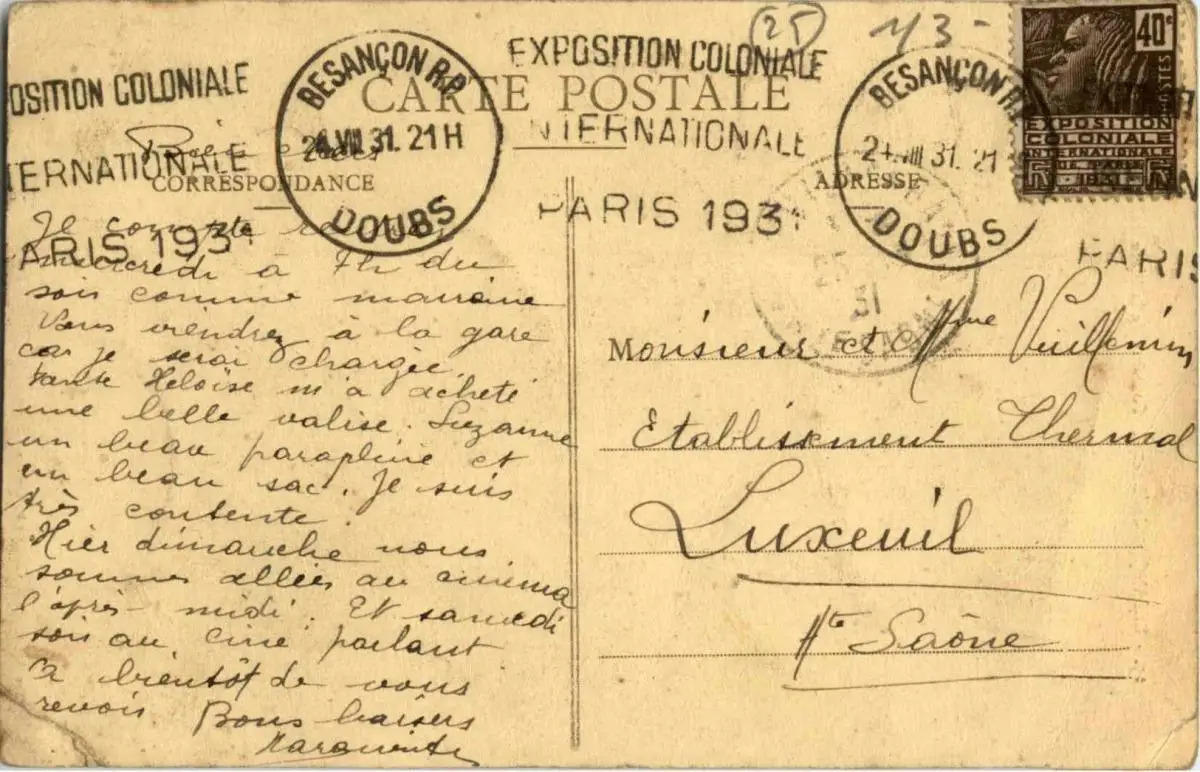 25
43-
EXPOSITION COLONIALE
INTERNATIONALE
PARIS 1931
OSITION COLONIALE
TERNATIONALE
ARIS 193
BESANÇON R.P.
24 VIII 31. 21H
DOUBS
BESANÇON R.P.
24 VIII 31. 21
DOUBS
PARIS
40c
POSTES
EXPOSITION
COLONIALE
INTERNATIONALE
DE PARIS
1931
CARTE POSTALE
CORRESPONDANCE
ADRESSE
31
Je compte
mercredi à 7h du
soir comme marraine
Vous viendrez à la gare
car je serai chargée.
tante Héloïse m'a acheté
une belle valise. Suzanne
un beau parapluie et
un beau sac. Je suis
très contente.
Hier dimanche nous
sommes allées au cinéma
l'après-midi. Et samedi
soir au ciné parlant
A bientôt de vous
revoir. Bons baisers
Marguerite
Monsieur et Mme Vuillemin
Etablissement Thermal
Luxeuil
Hte Saône